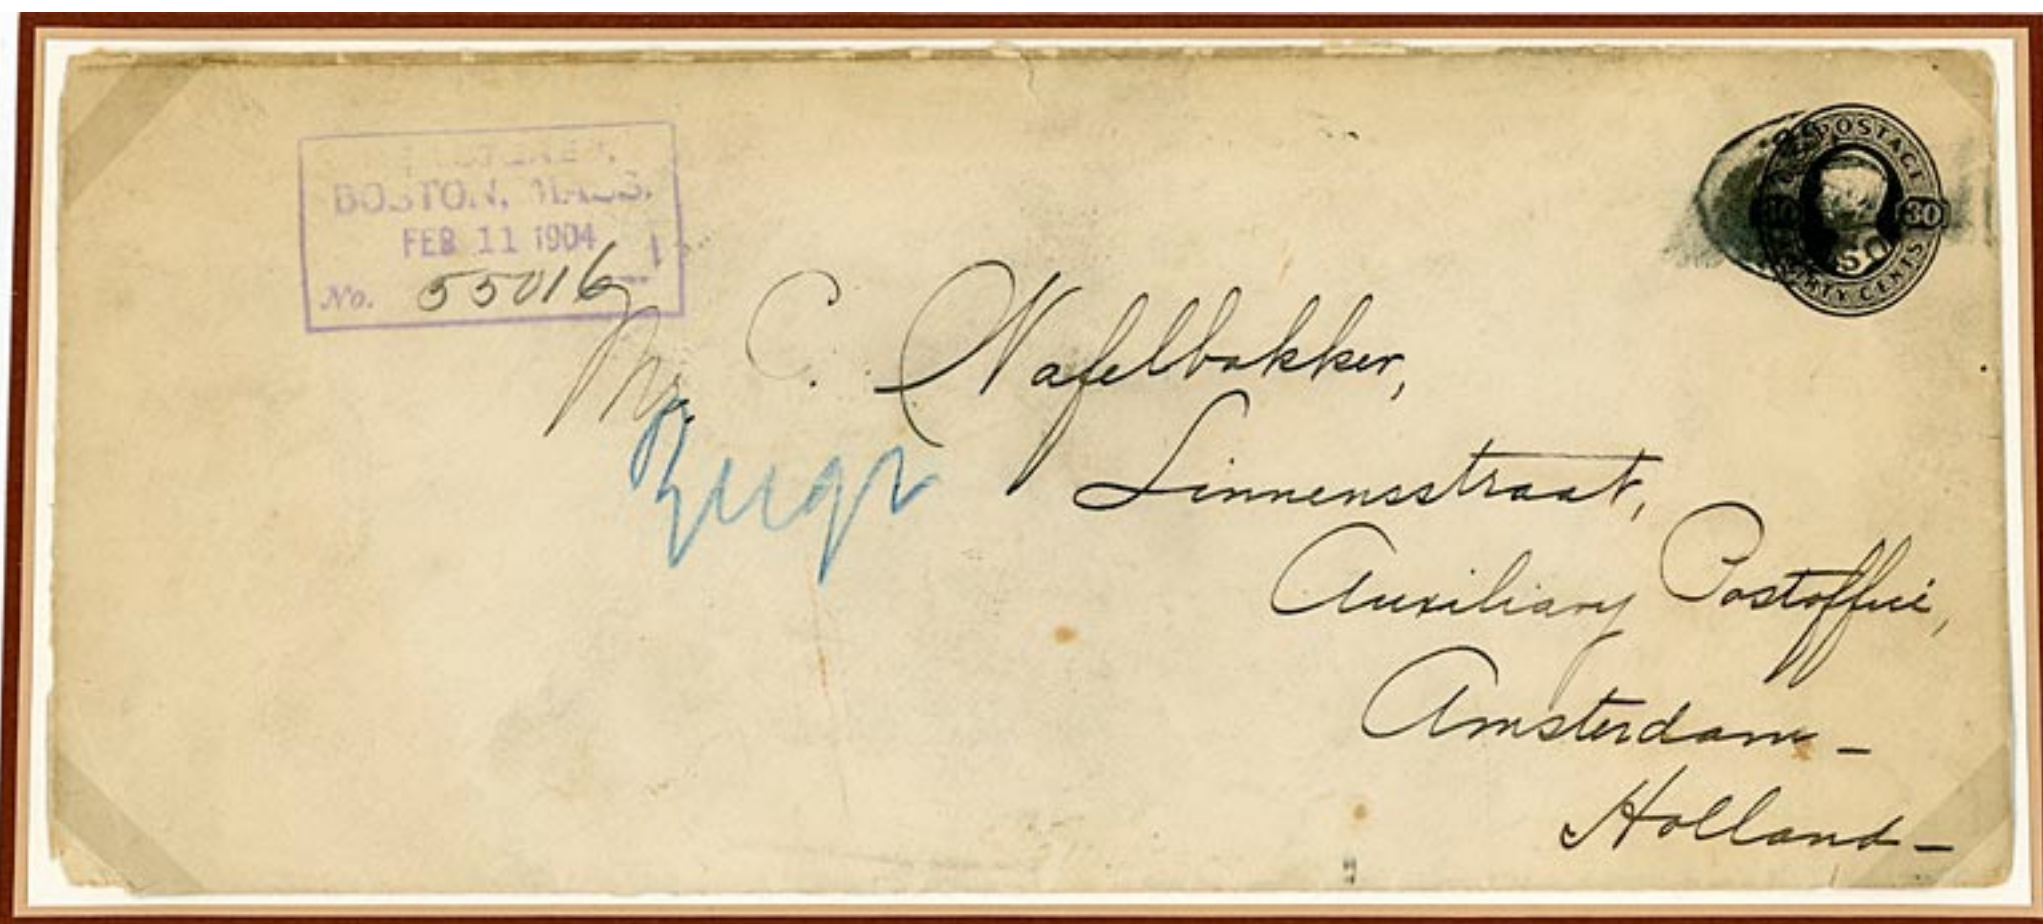 REGISTERED.
BOSTON, MASS.
FEB 11 1904
No. 55016
POSTAGE
30
THIRTY CENTS
Mr. C. Nafelbakker,
Linnensstraat,
Auxiliary Postoffice,
Amsterdam -
Holland -